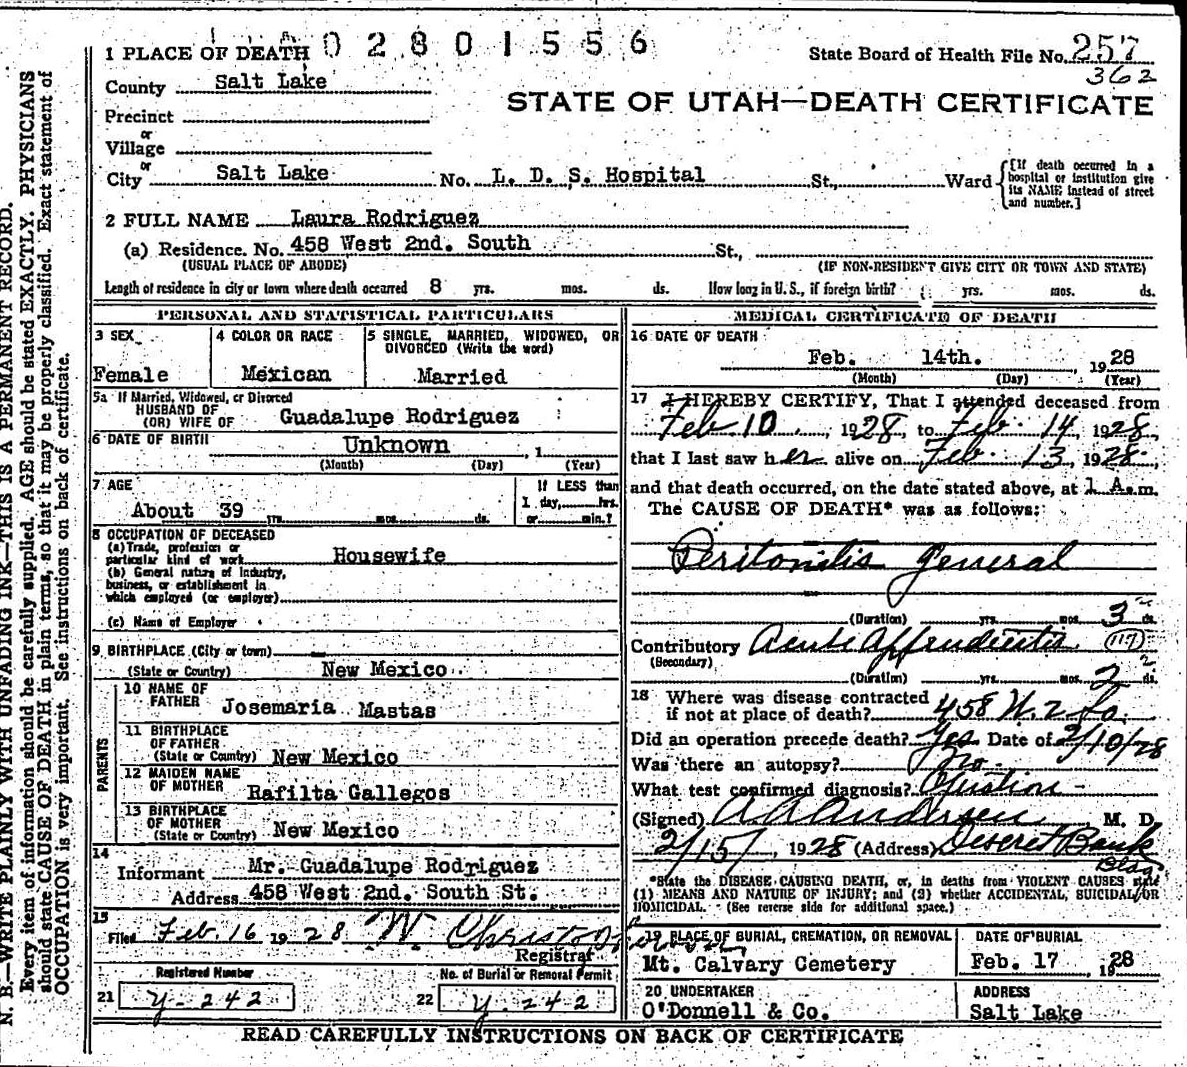 N. B.—WRITE PLAINLY WITH UNFADING INK—THIS IS A PERMANENT RECORD.
Every item of information should be carefully supplied. AGE should be stated EXACTLY. PHYSICIANS
should state CAUSE OF DEATH in plain terms, so that it may be properly classified. Exact statement of
OCCUPATION is very important. See instructions on back of certificate.
0 2 8 0 1 5 5 6
1 PLACE OF DEATH
State Board of Health File No. 257
362
County Salt Lake
STATE OF UTAH—DEATH CERTIFICATE
Precinct
or
Village
or
City Salt Lake No. L. D. S. Hospital St., Ward
[If death occurred in a hospital or institution give its NAME instead of street and number.]
2 FULL NAME Laura Rodriguez
(a) Residence. No. 458 West 2nd. South St.,
(USUAL PLACE OF ABODE) (IF NON-RESIDENT GIVE CITY OR TOWN AND STATE)
Length of residence in city or town where death occurred 8 yrs. mos. ds. How long in U. S., if foreign birth? yrs. mos. ds.
PERSONAL AND STATISTICAL PARTICULARS
3 SEX
Female
4 COLOR OR RACE
Mexican
5 SINGLE, MARRIED, WIDOWED, OR
DIVORCED (Write the word)
Married
5a If Married, Widowed, or Divorced
HUSBAND OF
(OR) WIFE OF Guadalupe Rodriguez
6 DATE OF BIRTH Unknown , 1
(Month) (Day) (Year)
7 AGE
About 39 yrs. mos. ds.
If LESS than
1 day, hrs.
or min.?
8 OCCUPATION OF DECEASED
(a) Trade, profession or
particular kind of work Housewife
(b) General nature of Industry,
business, or establishment in
which employed (or employer)
(c) Name of Employer
9 BIRTHPLACE (City or town)
(State or Country) New Mexico
PARENTS
10 NAME OF
FATHER Josemaria Mastas
11 BIRTHPLACE
OF FATHER
(State or Country) New Mexico
12 MAIDEN NAME
OF MOTHER Rafilta Gallegos
13 BIRTHPLACE
OF MOTHER
(State or Country) New Mexico
14
Informant Mr. Guadalupe Rodriguez
Address 458 West 2nd. South St.
15
Filed Feb. 16 1928 W. Christopherson
Registrar
Registered Number
21 Y-242
No. of Burial or Removal Permit
22 Y.242
MEDICAL CERTIFICATE OF DEATH
16 DATE OF DEATH
Feb. 14th. 1928
(Month) (Day) (Year)
17 I HEREBY CERTIFY, That I attended deceased from
Feb 10, 1928, to Feb. 14, 1928,
that I last saw her alive on Feb. 13, 1928,
and that death occurred, on the date stated above, at 1 A.m.
The CAUSE OF DEATH* was as follows:
Peritonitis general
(Duration) yrs. mos. 3 ds.
Contributory Acute Appendicitis 117
(Secondary)
(Duration) yrs. mos. 2 ds.
18 Where was disease contracted
if not at place of death? 458 W. 2 So.
Did an operation precede death? Yes Date of 2/10/28
Was there an autopsy? No
What test confirmed diagnosis?
(Signed) A A Anderson, M. D.
2/15, 1928 (Address) Deseret Bank
Bldg
*State the DISEASE CAUSING DEATH, or, in deaths from VIOLENT CAUSES state
(1) MEANS AND NATURE OF INJURY; and (2) whether ACCIDENTAL, SUICIDAL, OR
HOMICIDAL. (See reverse side for additional space.)
19 PLACE OF BURIAL, CREMATION, OR REMOVAL
Mt. Calvary Cemetery
DATE OF BURIAL
Feb. 17 1928
20 UNDERTAKER
O'Donnell & Co.
ADDRESS
Salt Lake
READ CAREFULLY INSTRUCTIONS ON BACK OF CERTIFICATE